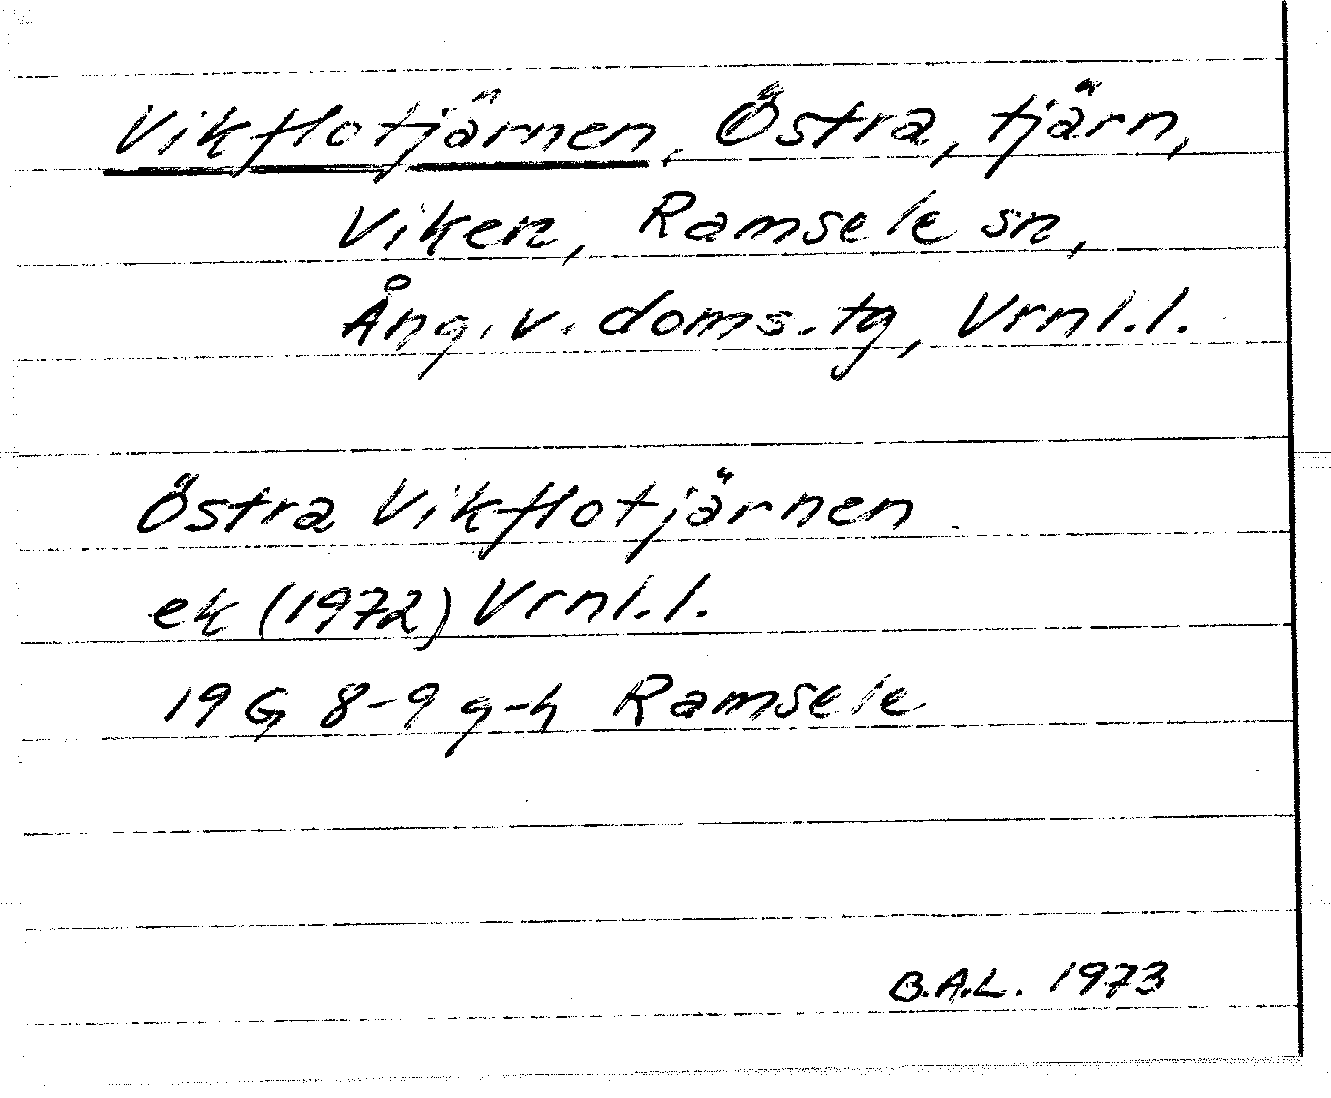 Vikflotjärnen, Östra, tjärn,
Viken, Ramsele sn,
Ång. v. doms. tg, Vrnl.l.
Östra Vikflotjärnen
ek (1972) Vrnl.l.
19 G 8-9 g-h Ramsele
B.A.L. 1973